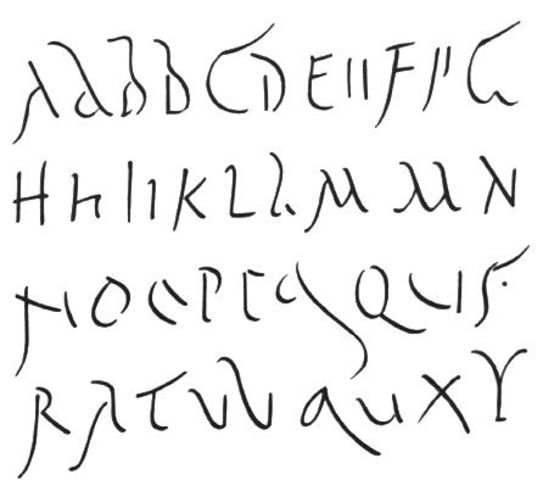 A A B B C D E II F I' G
H h I I K L L M M N
N O O P P Q Q S
R R T V V u X Y